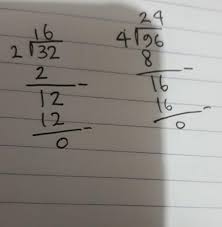 16
2√32
2 -
12
12 -
0
24
4√96
8 -
16
16 -
0